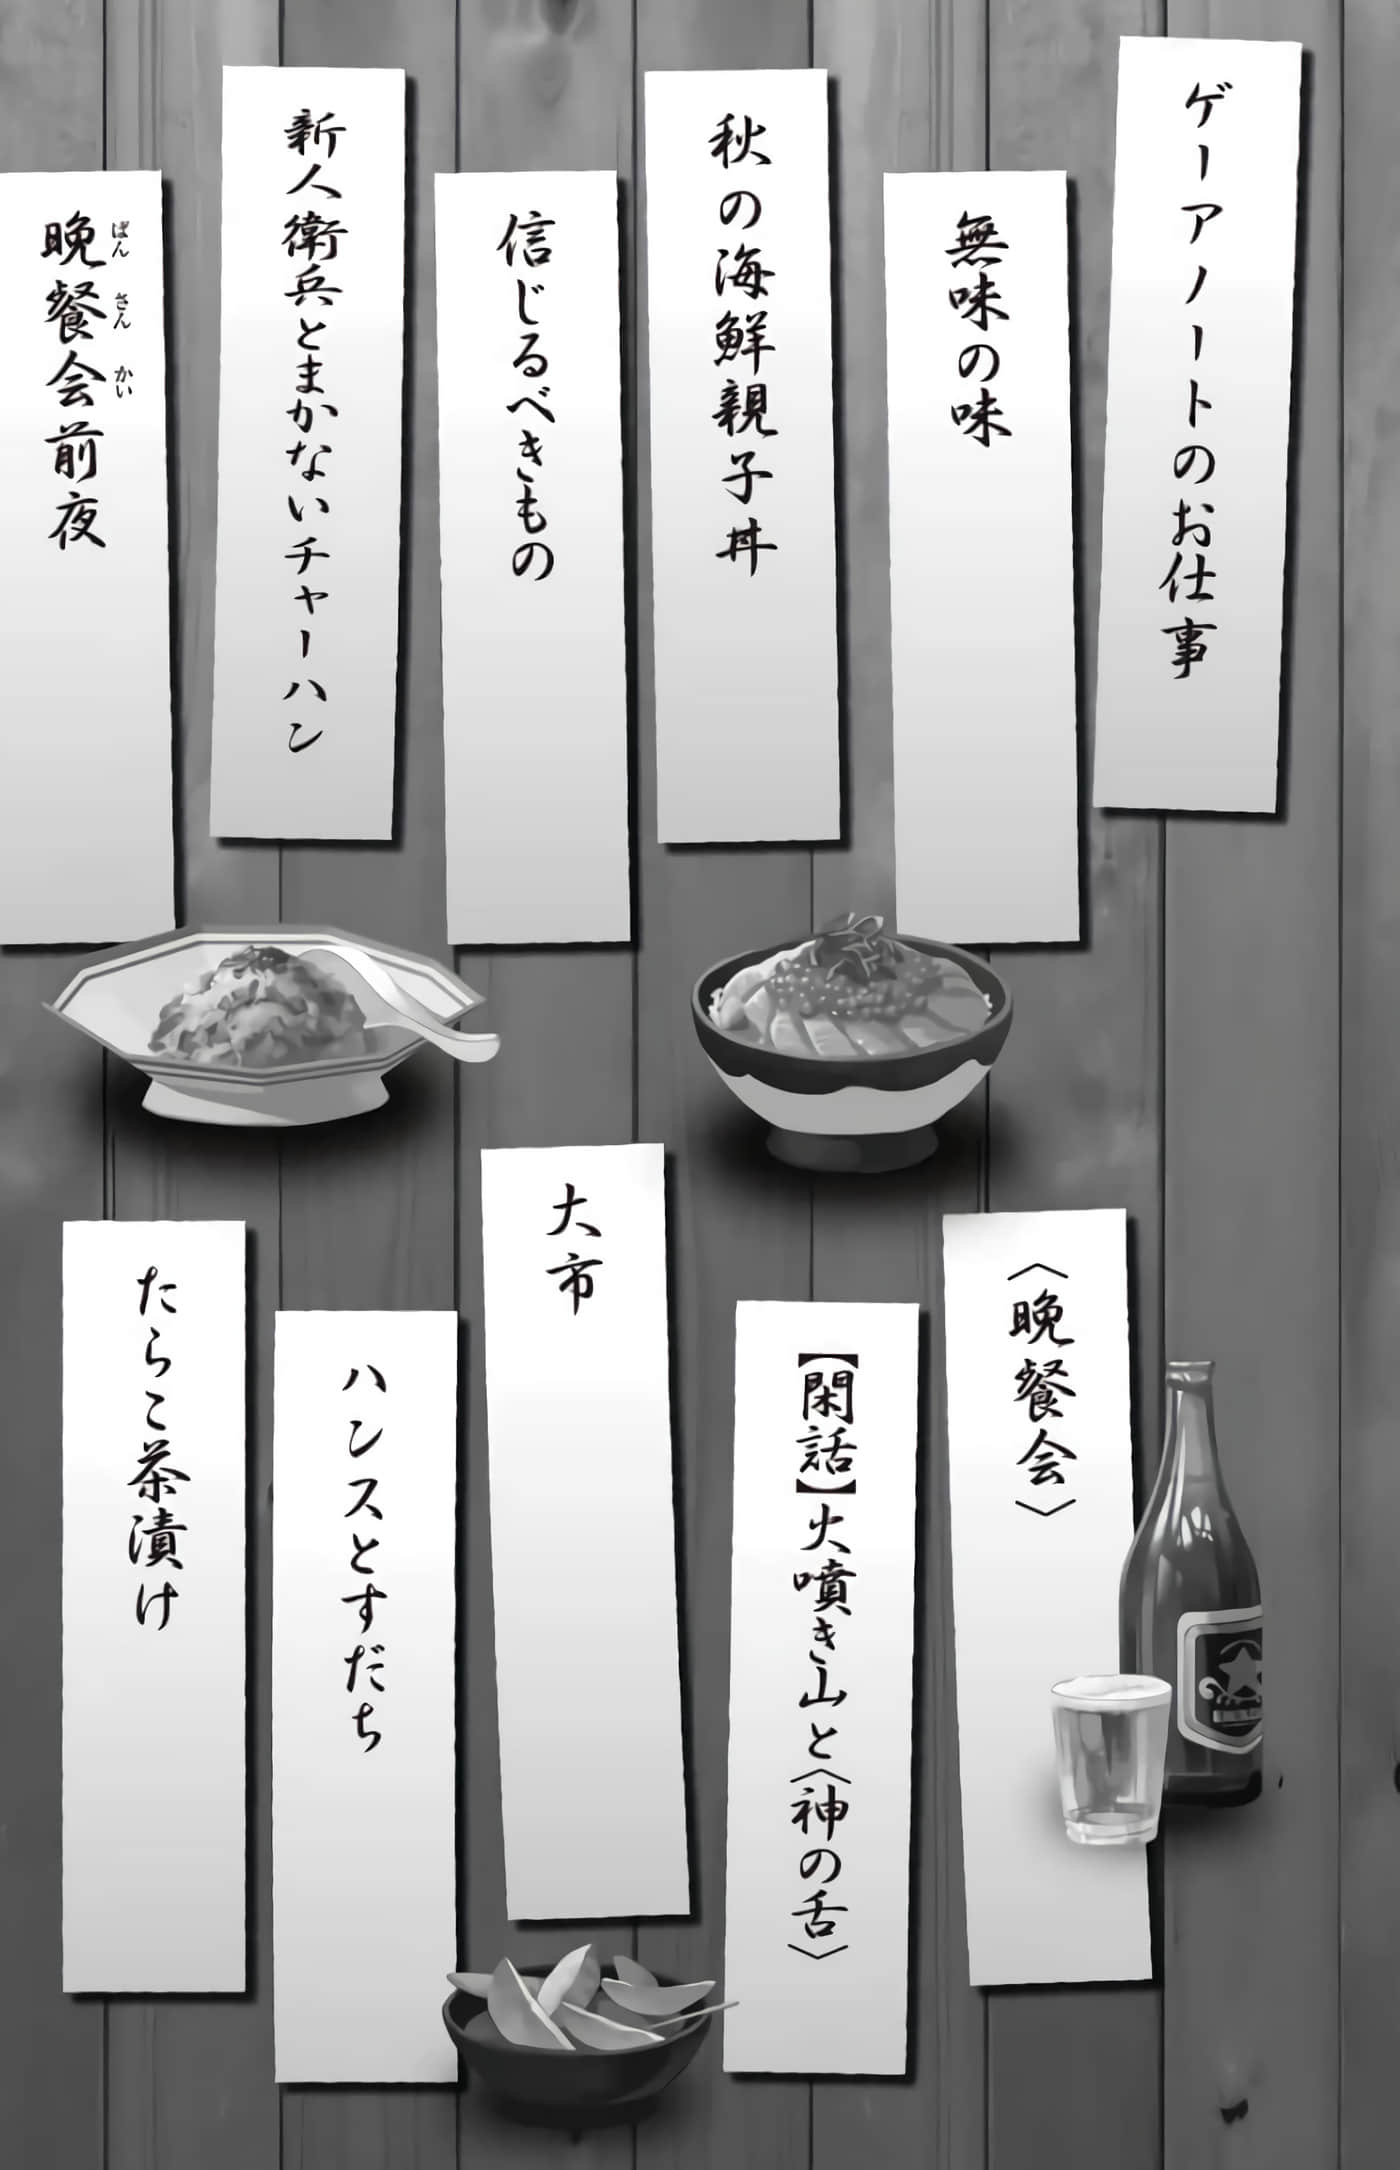 ゲーアノートのお仕事
無味の味
秋の海鮮親子丼
信じるべきもの
新人衛兵とまかないチャーハン
晩餐会前夜
ばんさんかい
〈晩餐会〉
【閑話】火噴き山と〈神の舌〉
大市
ハンスとすだち
たらこ茶漬け